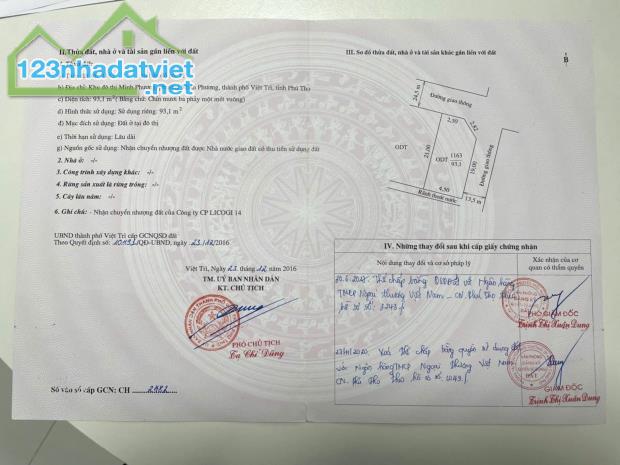 II. Thửa đất, nhà ở và tài sản gắn liền với đất
123nhadatviet
.net
b) Địa chỉ: Khu đô thị Minh Phương, thành phố Việt Trì, tỉnh Phú Thọ
c) Diện tích: 93,1 m² (Bằng chữ: Chín mươi ba phẩy một mét vuông)
d) Hình thức sử dụng: Sử dụng riêng: 93,1 m²
đ) Mục đích sử dụng: Đất ở tại đô thị
e) Thời hạn sử dụng: Lâu dài
g) Nguồn gốc sử dụng: Nhận chuyển nhượng đất được Nhà nước giao đất có thu tiền sử dụng đất
2. Nhà ở: -/-
3. Công trình xây dựng khác: -/-
4. Rừng sản xuất là rừng trồng: -/-
5. Cây lâu năm: -/-
6. Ghi chú: - Nhận chuyển nhượng đất của Công ty CP LICOGI 14
UBND thành phố Việt Trì cấp GCNQSD đất
Theo Quyết định số: /QĐ-UBND, ngày 23/12/2016
Việt Trì, ngày 23 tháng 12 năm 2016
TM. UỶ BAN NHÂN DÂN
KT. CHỦ TỊCH
PHÓ CHỦ TỊCH
Tạ Chí Dũng
Số vào sổ cấp GCN: CH
III. Sơ đồ thửa đất, nhà ở và tài sản khác gắn liền với đất
B
24,5 m
Đường giao thông
2,50
2,82
ODT
21,00
ODT
1163
93,1
19,00
Đường giao thông
4,50
13,5 m
Rãnh thoát nước
IV. Những thay đổi sau khi cấp giấy chứng nhận
Nội dung thay đổi và cơ sở pháp lý
Xác nhận của cơ quan có thẩm quyền
Thế chấp bằng QSDĐ với Ngân hàng
TMCP Ngoại thương Việt Nam - CN Phú Thọ
hồ sơ số: 3243
PHÓ GIÁM ĐỐC
Trịnh Thị Xuân Dung
Xoá thế chấp bằng quyền sử dụng đất
với Ngân hàng TMCP Ngoại thương Việt Nam
CN Phú Thọ hồ sơ số
GIÁM ĐỐC
Trịnh Thị Xuân Dung